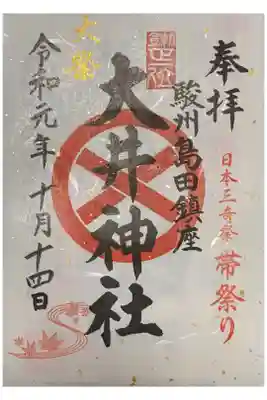 奉拝
日本三奇祭
帯祭り
駿州島田鎮座
大井神社
大祭
令和元年十月十四日